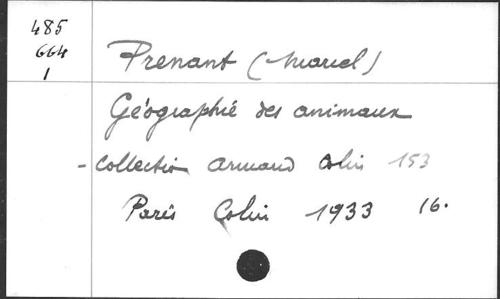 485
664
1
Prenant (Marcel)
Géographie des animaux
- Collection Armand Colin 153
Paris Colin 1933 16.